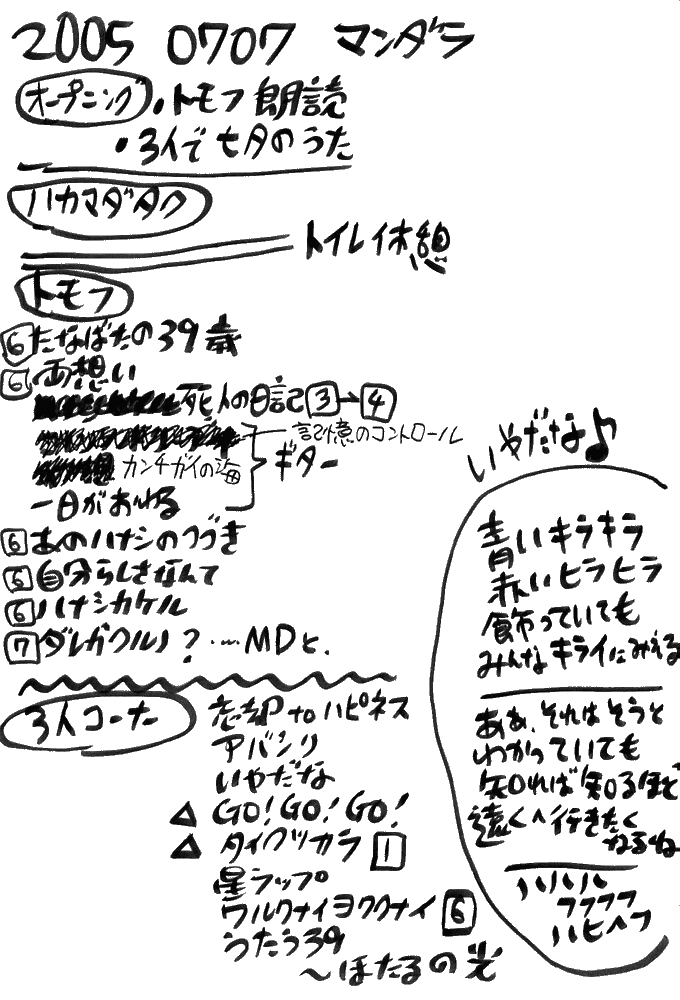 2005 0707 マンダラ
オープニング ・トモフ 朗読
・3人で 七夕のうた
ハカマダタク
トイレイ休憩
トモフ
6 たなばたの39歳
6 両想い
死人の日記 3→4
記憶のコントロール
カンチガイの海 ギター
一日がおわる
6 あのハナシのつづき
6 自分らしさなんて
6 ハナシカケル
7 ダレガワルイ?……MDと.
3人コーナー 忘却 to ハピネス
アバンリ
いやだな
△ GO! GO! GO!
△ タイクツカラ 1
星ラップ
ワルクナイヨワクナイ 6
うたう39
〜ほたるの光
いやだな♪
青いキラキラ
赤いヒラヒラ
飾っていても
みんなキライにみえる
ああ、それはそうと
わかっていても
知れば知るほど
遠くへ行きたく
なるね
ハハハハ
フフフフ
ハヒヘフ